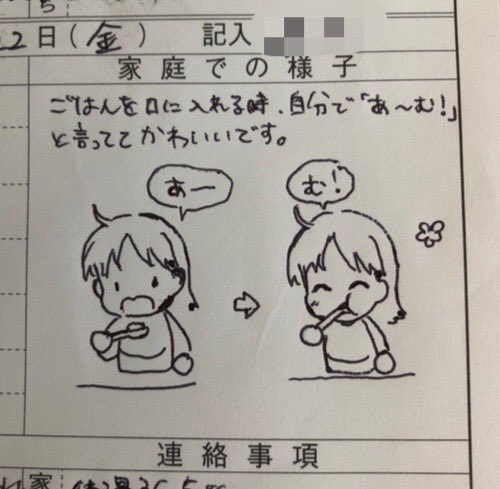 22日(金) 記入
家庭での様子
ごはんを口に入れる時、自分で「あ〜む!」
と言っててかわいいです。
あー
む!
連絡事項
家 体温36.5